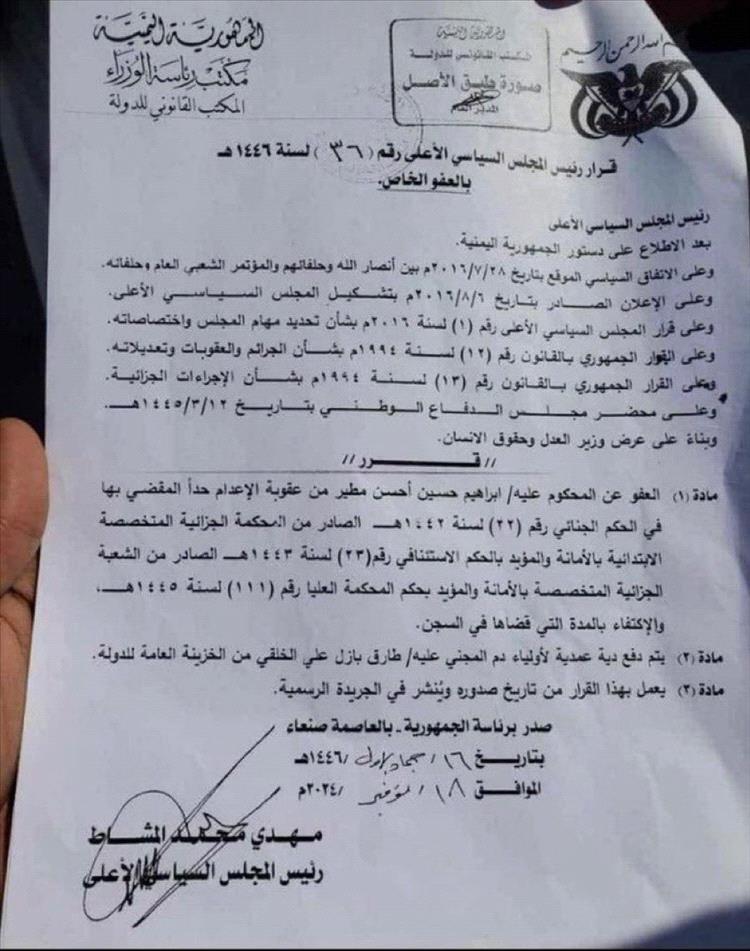 الجمهورية اليمنية
مكتب رئاسة الوزراء
المكتب القانوني للدولة
الجمهورية اليمنية
المكتب القانوني للدولة
صورة طبق الأصل
المدير العام
بسم الله الرحمن الرحيم
قرار رئيس المجلس السياسي الأعلى رقم (٣٦) لسنة ١٤٤٦هـ
بالعفو الخاص.
رئيس المجلس السياسي الأعلى
بعد الاطلاع على دستور الجمهورية اليمنية.
وعلى الاتفاق السياسي الموقع بتاريخ ٢٠١٦/٧/٢٨م بين أنصار الله وحلفائهم والمؤتمر الشعبي العام وحلفائه.
وعلى الإعلان الصادر بتاريخ ٢٠١٦/٨/٦م بتشكيل المجلس السياسي الأعلى.
وعلى قرار المجلس السياسي الأعلى رقم (١) لسنة ٢٠١٦م بشأن تحديد مهام المجلس واختصاصاته.
وعلى القرار الجمهوري بالقانون رقم (١٢) لسنة ١٩٩٤م بشأن الجرائم والعقوبات وتعديلاته.
وعلى القرار الجمهوري بالقانون رقم (١٣) لسنة ١٩٩٤م بشأن الإجراءات الجزائية.
وعلى محضر مجلس الدفاع الوطني بتاريخ ١٤٤٥/٣/١٢هـ.
وبناءً على عرض وزير العدل وحقوق الانسان.
// قــرر //
مادة (١) العفو عن المحكوم عليه/ ابراهيم حسين أحسن مطير من عقوبة الإعدام حداً المقضي بها
في الحكم الجنائي رقم (٢٢) لسنة ١٤٤٢هـ الصادر من المحكمة الجزائية المتخصصة
الابتدائية بالأمانة والمؤيد بالحكم الاستئنافي رقم(٢٣) لسنة ١٤٤٣هـ الصادر من الشعبة
الجزائية المتخصصة بالأمانة والمؤيد بحكم المحكمة العليا رقم (١١١) لسنة ١٤٤٥هـ،
والإكتفاء بالمدة التي قضاها في السجن.
مادة (٢) يتم دفع دية عمدية لأولياء دم المجني عليه/ طارق بازل علي الخلقي من الخزينة العامة للدولة.
مادة (٣) يعمل بهذا القرار من تاريخ صدوره ويُنشر في الجريدة الرسمية.
صدر برئاسة الجمهورية - بالعاصمة صنعاء
بتاريخ ١٦/جماد الاول/١٤٤٦هـ
الموافق ١٨/نوفمبر/٢٠٢٤م
مهدي محمد المشاط
رئيس المجلس السياسي الأعلى